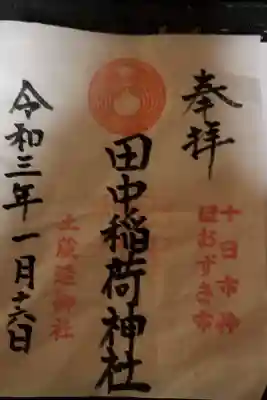 奉拝
十日市㚑
ほおずき市
田中稲荷神社
土蔵造御社
令和三年一月十六日